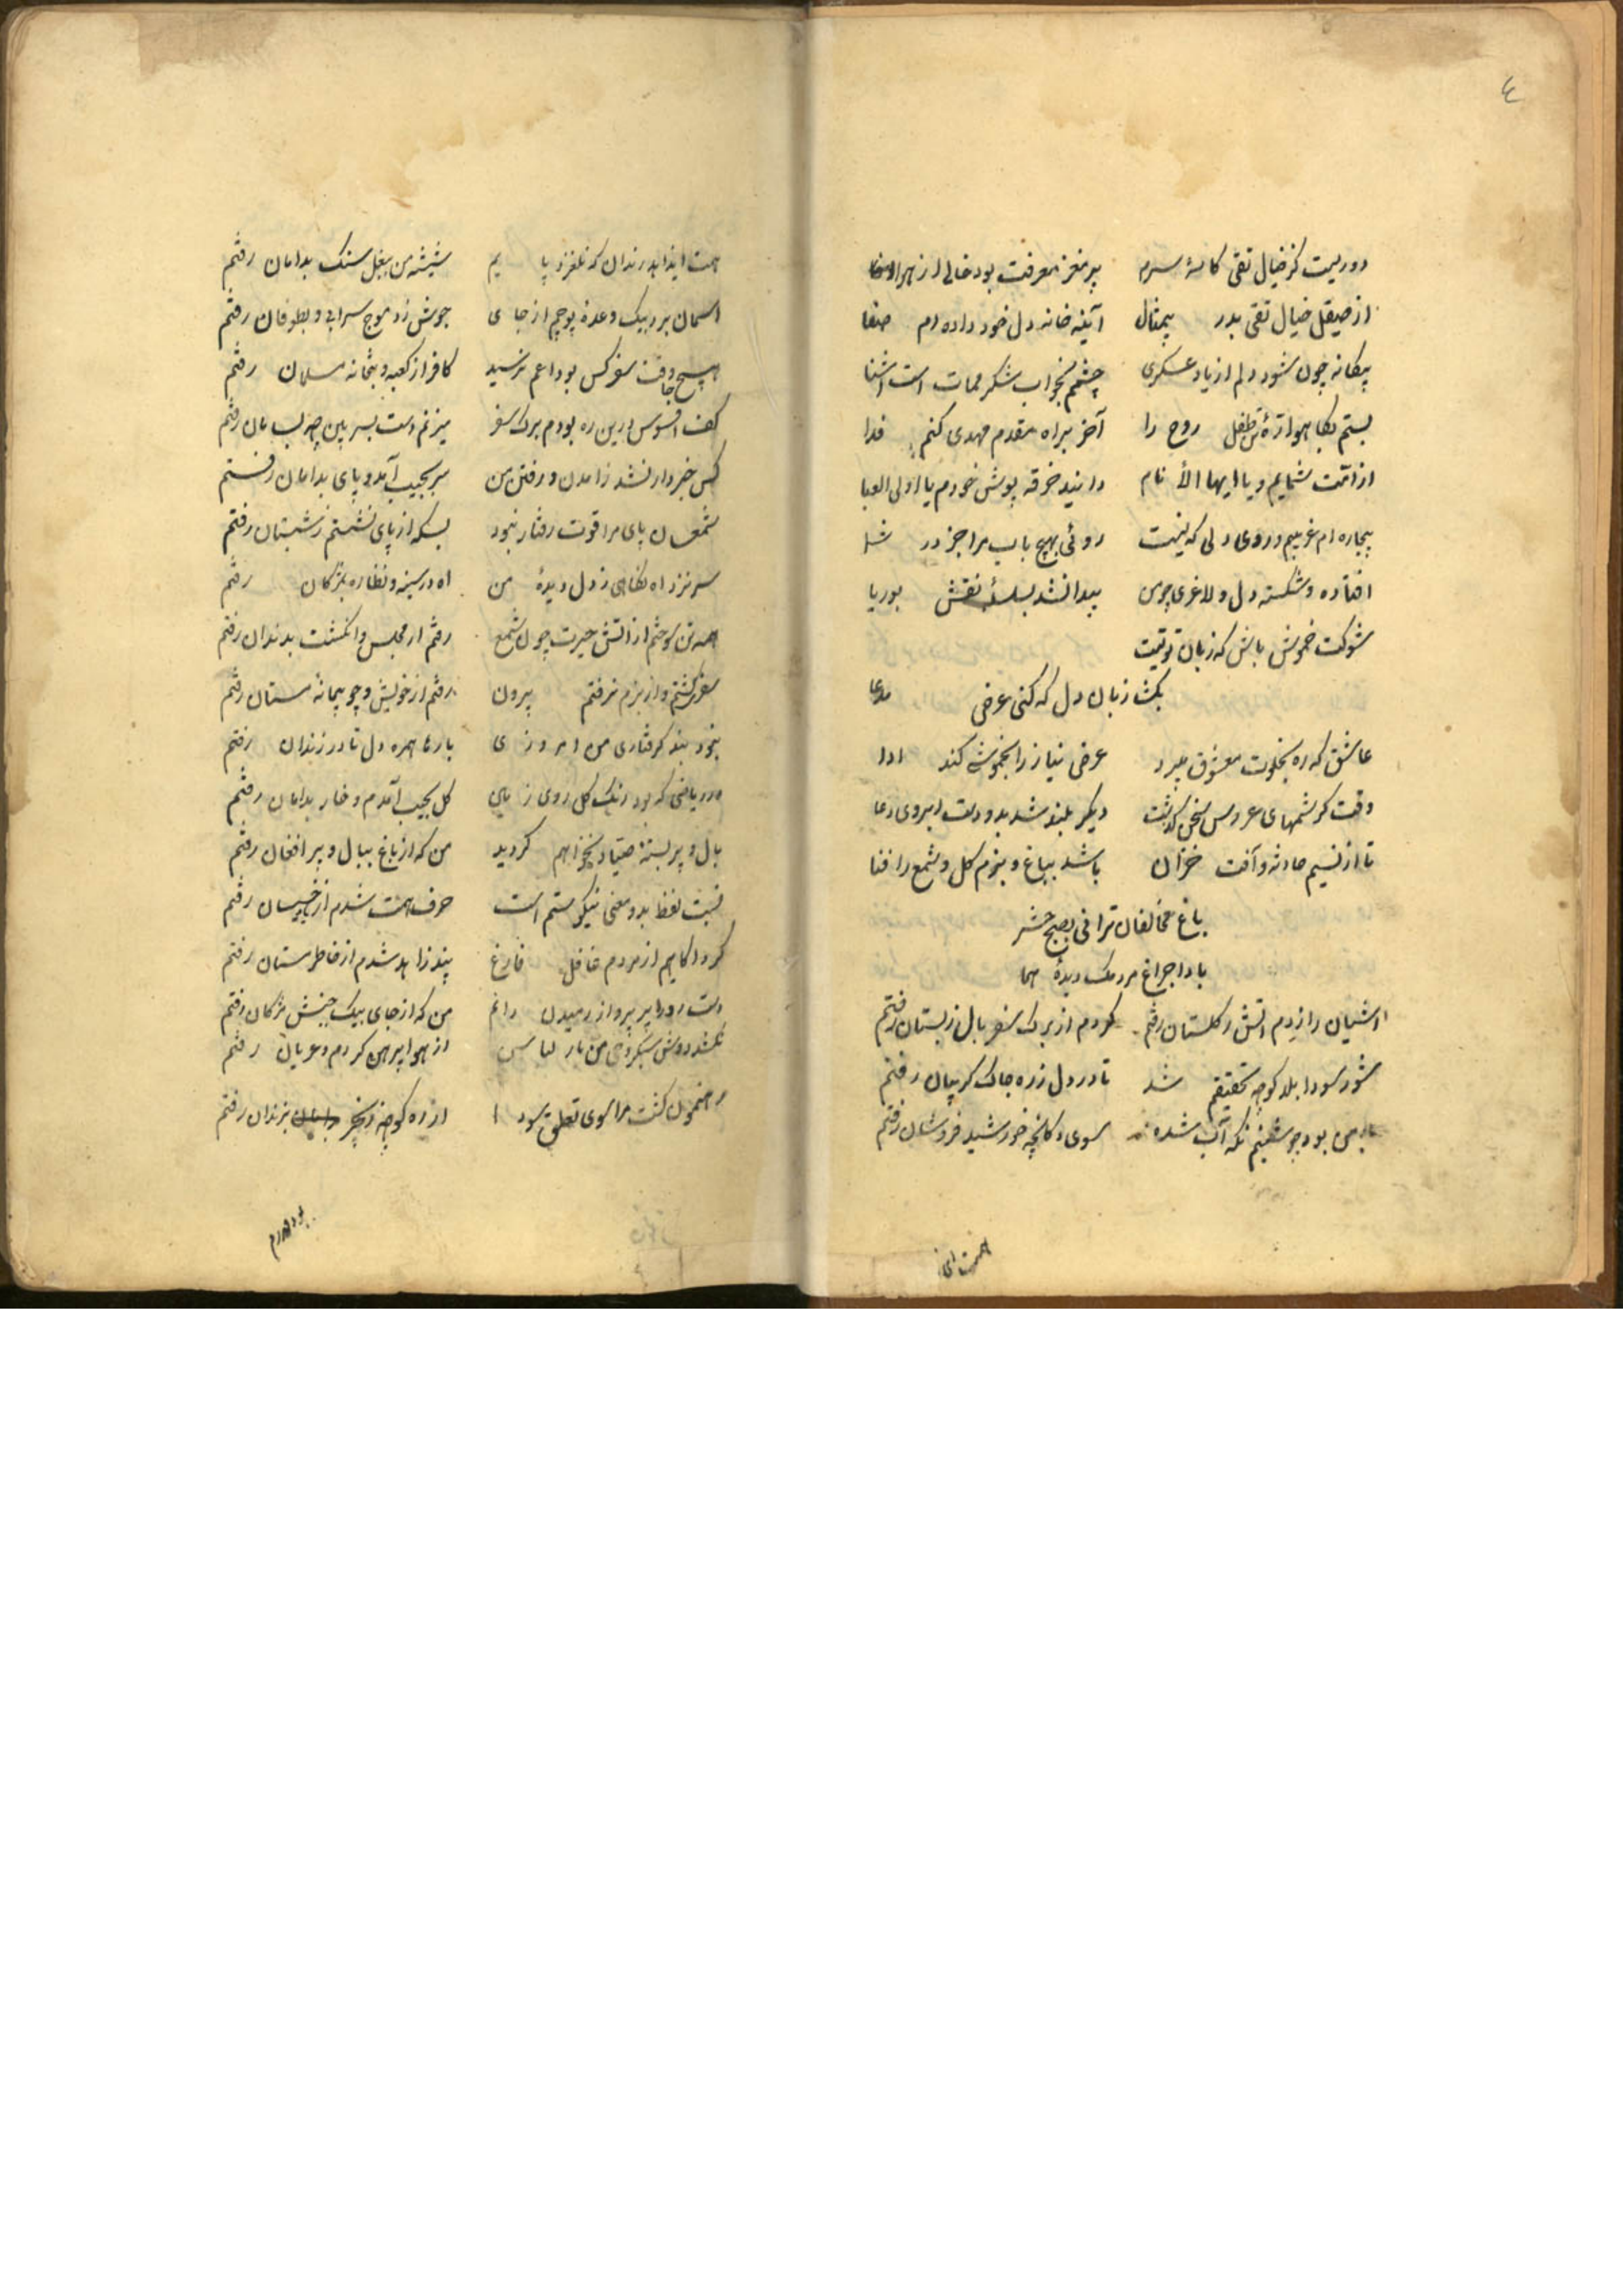 ٤
دوریست کز خیال تقی کاسهٔ سرم پر مغز معرفت بود خالی از هوا
از صیقل خیال تقی بدر بیمثال آیینه خانه دل خود داده ام صفا
بیکانه چون شود دلم از یاد عسکری چشمم بخواب شکر ممات است اشنا
بستم بکاهواره تن طفل روح را آخر براه مقدم مهدی کنم فدا
از امت شمایم و یا ایها الأنام دانید خرقه پوش خودم یا اولی العبا
بیچاره ام غریبم و روی دلی که نیست روئی بهیچ باب مرا جز در شما
افتاده و شکسته دل و لاغری چو من پیدا نشد بسلسلهٔ نقش بوریا
شوکت خموش باش که زبان تو نیست
بکشا زبان دل که کنی عرض مدعا
عاشق که ره بخلوت معشوق میبرد عرض نیاز را بخموشی کند ادا
وقت کرشمهای عروس سخن کذشت دیکر بلند شد بدو دست ابروی دعا
تا از نسیم حادثه و آفت خزان باشد بباغ و بزم کل و شمع را فنا
باغ مخالفان ترا فی بصبح حشر
بادا چراغ مردمک دیدهٔ هما
اشیان را زدم اتش ز کلستان رفتم کردم از برک سفر بال ز بستان رفتم
شور سودا بلد کوچه تحقیقم شد تا در دل ز ره چاک کریبان رفتم
من بود چو شبنم نکه آب شده سوی دکانچه خورشید فروشان رفتم
همت ای
همت ای زاهد رندان که نلغزد پایم شیشه من ببغل سنک بدامان رفتم
اسمان برد بیک وعدهٔ پوچم از جای جوش زد موج سرابی و بطوفان رفتم
هیچ جا وقت سفر کس بوداعم نرسید کافر از کعبه و بتخانه مسلمان رفتم
کف افسوس درین ره بودم برک سفر میزنم دست بسر بین بچه سامان رفتم
کس خبردار نشد ز امدن و رفتن من سر بجیب آمد و پای بدامان رفتم
شمعسان پای مرا قوت رفتار نبود بسکه از پای نشستم ز شبستان رفتم
سر نزد اه نکاهی ز دل دیدهٔ من اه در سینه و نظاره بمژکان رفتم
همه تن سوختم از اتش حیرت چون شمع رفتم از مجلس و انکشت بدندان رفتم
سفری کشتم و از بزم نرفتم بیرون رفتم از خویش و چو پیمانه مستان رفتم
نبود بند کرفتاری من امروزی بارها همره دل تا در زندان رفتم
در ریاضی که بود رنک کل روی ز پای کل بجیب آمدم و خار بدامان رفتم
بال و پر بستهٔ صیاد نخواهم کردید من که از باغ ببال و پر افغان رفتم
نسبت لفظ بد و معنی نیکو ستم است حرف همت شدم از یاد خسیسان رفتم
کرد اکاهیم از مردم غافل فارغ پند زاهد شدم از خاطر مستان رفتم
دست رد را پر پرواز رمیدن دانم من که از جای بیک جنبش مژکان رفتم
نکشد دوش سبکروحی من بار لباس از هوا پیرهن کردم و عریان رفتم
رهنمون کشت مرا سوی تعلق سودا از ره کوچه زنجیر بزندان رفتم